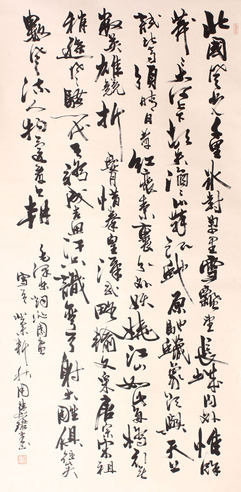 北國風光千里冰封萬里雪飄望長城內外惟餘
莽莽大河上下頓失滔滔山舞銀蛇原馳蠟象欲與天公
試比高須晴日看紅裝素裹分外妖嬈江山如此多嬌引無
數英雄競折腰惜秦皇漢武略輸文采唐宗宋祖
稍遜風騷一代天驕成吉思汗只識彎弓射大雕俱往矣
數風流人物還看今朝
毛澤東詞沁園春
雪